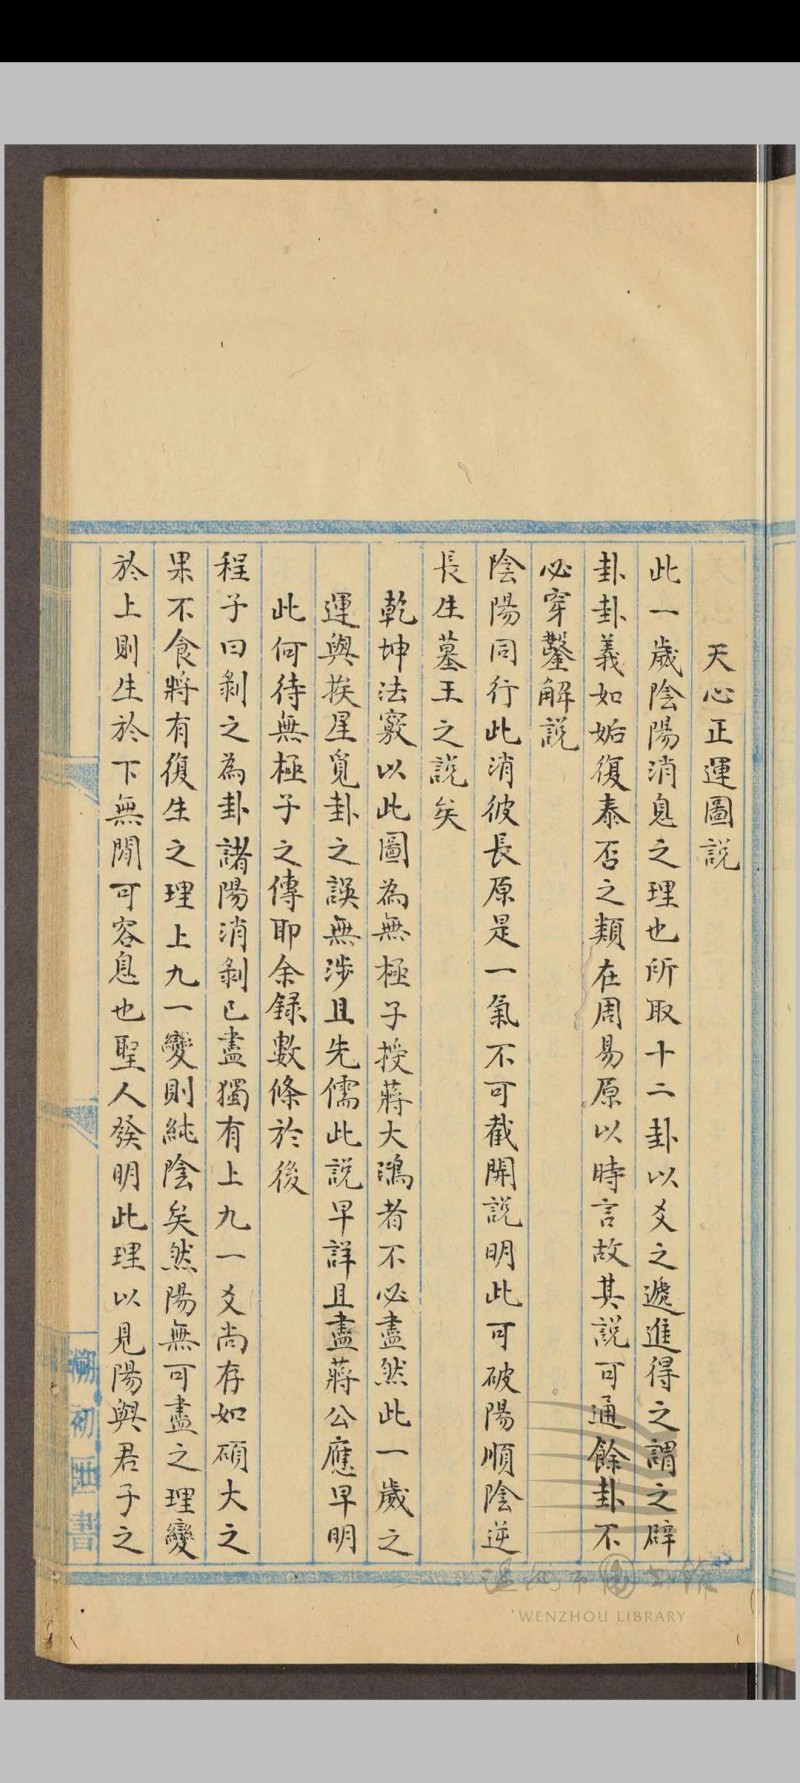 天心正運圖說
此一歲陰陽消息之理也所取十二卦以爻之遞進得之謂之辟
卦卦義如姤復泰否之類在周易原以時言故其說可通餘卦不
必穿鑿解說
陰陽同行此消彼長原是一氣不可截開說明此可破陽順陰逆
長生墓王之說矣
乾坤法竅以此圖為無極子授蔣大鴻者不必盡然此一歲之
運與挨星覓卦之誤無涉且先儒此說早詳且盡蔣公應早明
此何待無極子之傳耶余録數條於後
程子曰剝之為卦諸陽消剝已盡獨有上九一爻尚存如碩大之
果不食將有復生之理上九一變則純陰矣然陽無可盡之理變
於上則生於下無間可容息也聖人發明此理以見陽與君子之
初
書
溫州市圖書館
WENZHOU LIBRARY